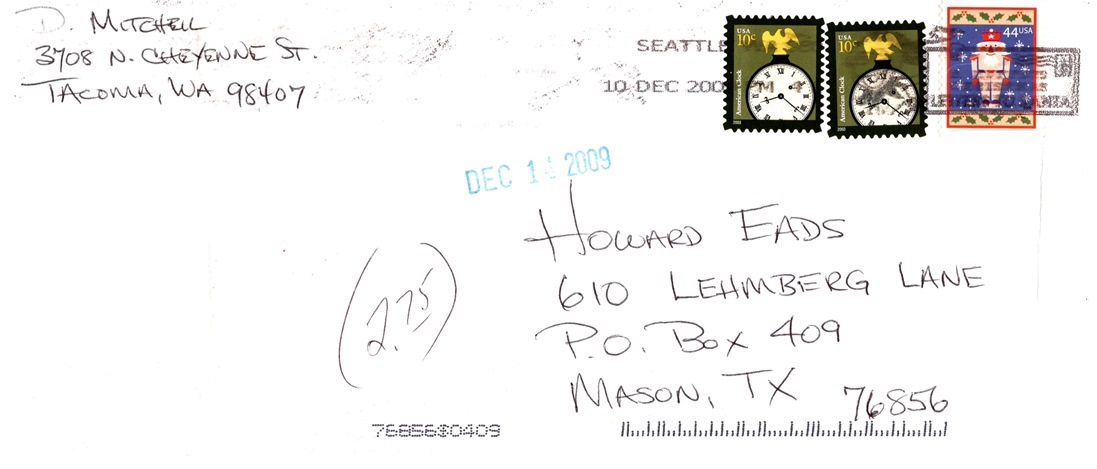 D. MITCHELL
3708 N. CHEYENNE ST.
TACOMA, WA 98407
SEATTLE
10 DEC 200
USA
10c
American Clock
2003
USA
10c
American Clock
2003
44USA
DEC 14 2009
HOWARD EADS
610 LEHMBERG LANE
P.O. BOX 409
MASON, TX 76856
(2.75)
76856$0409